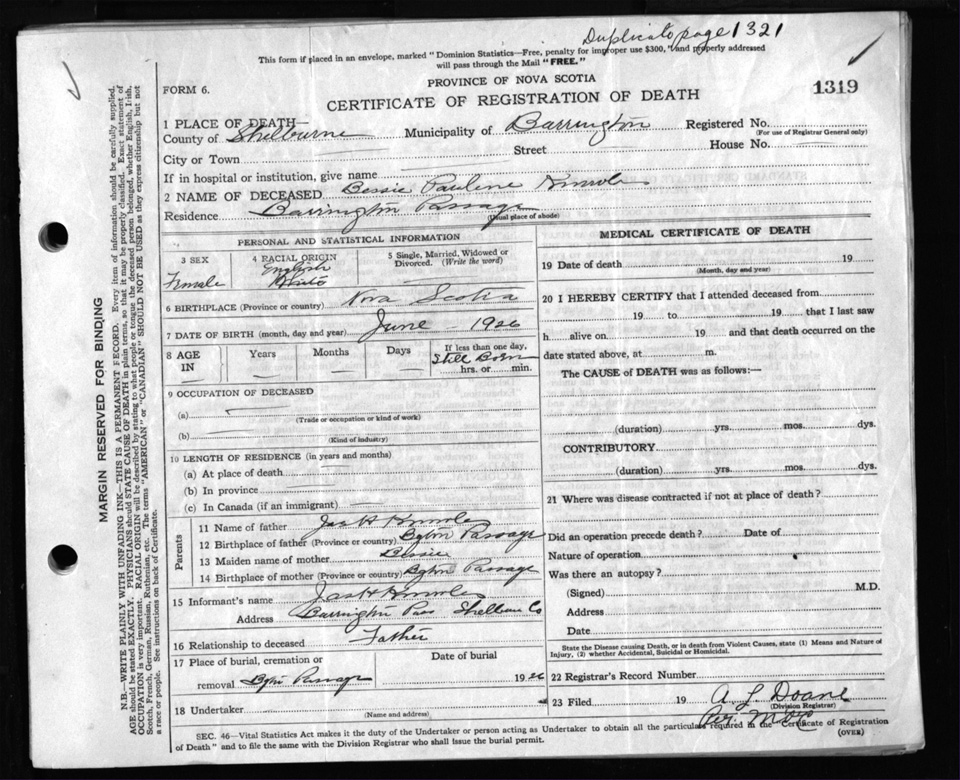 Duplicate page 1321
This form if placed in an envelope, marked "Dominion Statistics—Free, penalty for improper use $300," and properly addressed
will pass through the Mail "FREE."
PROVINCE OF NOVA SCOTIA
FORM 6.
CERTIFICATE OF REGISTRATION OF DEATH
1319
1 PLACE OF DEATH—
County of Shelburne Municipality of Barrington Registered No.
(For use of Registrar General only)
City or Town Street House No.
If in hospital or institution, give name
2 NAME OF DECEASED Bessie Pauline
Residence Barrington Passage
(Usual place of abode)
PERSONAL AND STATISTICAL INFORMATION
3 SEX
Female
4 RACIAL ORIGIN
English
5 Single, Married, Widowed or
Divorced. (Write the word)
6 BIRTHPLACE (Province or country) Nova Scotia
7 DATE OF BIRTH (month, day and year) June - 1926
8 AGE
IN
Years
Months
Days
If less than one day,
Still Born
hrs. or min.
9 OCCUPATION OF DECEASED
(a)
(Trade or occupation or kind of work)
(b)
(Kind of industry)
10 LENGTH OF RESIDENCE (in years and months)
(a) At place of death
(b) In province
(c) In Canada (if an immigrant)
Parents
11 Name of father Jas H
12 Birthplace of father (Province or country) Bgtn Passage
13 Maiden name of mother Bessie
14 Birthplace of mother (Province or country) Bgtn Passage
15 Informant's name Jas H
Address Barrington Pass Shelburne Co
16 Relationship to deceased Father
17 Place of burial, cremation or
removal Bgtn Passage
Date of burial
1926
18 Undertaker
(Name and address)
MEDICAL CERTIFICATE OF DEATH
19 Date of death 19
(Month, day and year)
20 I HEREBY CERTIFY that I attended deceased from
19 to 19 that I last saw
h alive on 19 and that death occurred on the
date stated above, at m.
The CAUSE of DEATH was as follows:—
(duration) yrs. mos. dys.
CONTRIBUTORY
(duration) yrs. mos. dys.
21 Where was disease contracted if not at place of death?
Did an operation precede death? Date of
Nature of operation
Was there an autopsy?
(Signed) M.D.
Address
Date
State the Disease causing Death, or in death from Violent Causes, state (1) Means and Nature of
Injury, (2) whether Accidental, Suicidal or Homicidal.
22 Registrar's Record Number
23 Filed 19 A L Doane
(Division Registrar)
Per
SEC. 46—Vital Statistics Act makes it the duty of the Undertaker or person acting as Undertaker to obtain all the particulars required in the Certificate of Registration
of Death" and to file the same with the Division Registrar who shall issue the burial permit.
(OVER)
MARGIN RESERVED FOR BINDING
N.B.—WRITE PLAINLY WITH UNFADING INK—THIS IS A PERMANENT RECORD. Every item of information should be carefully supplied.
AGE should be stated EXACTLY. PHYSICIANS should STATE CAUSE OF DEATH in plain terms, so that it may be properly classified. Exact statement of
OCCUPATION is very important. RACIAL ORIGIN will be described by stating to what people or tongue the deceased person belonged, whether English, Irish,
Scotch, French, German, Russian, Ruthenian, etc. The terms "AMERICAN" or "CANADIAN" SHOULD NOT BE USED as they express citizenship but not
a race or people. See instructions on back of Certificate.